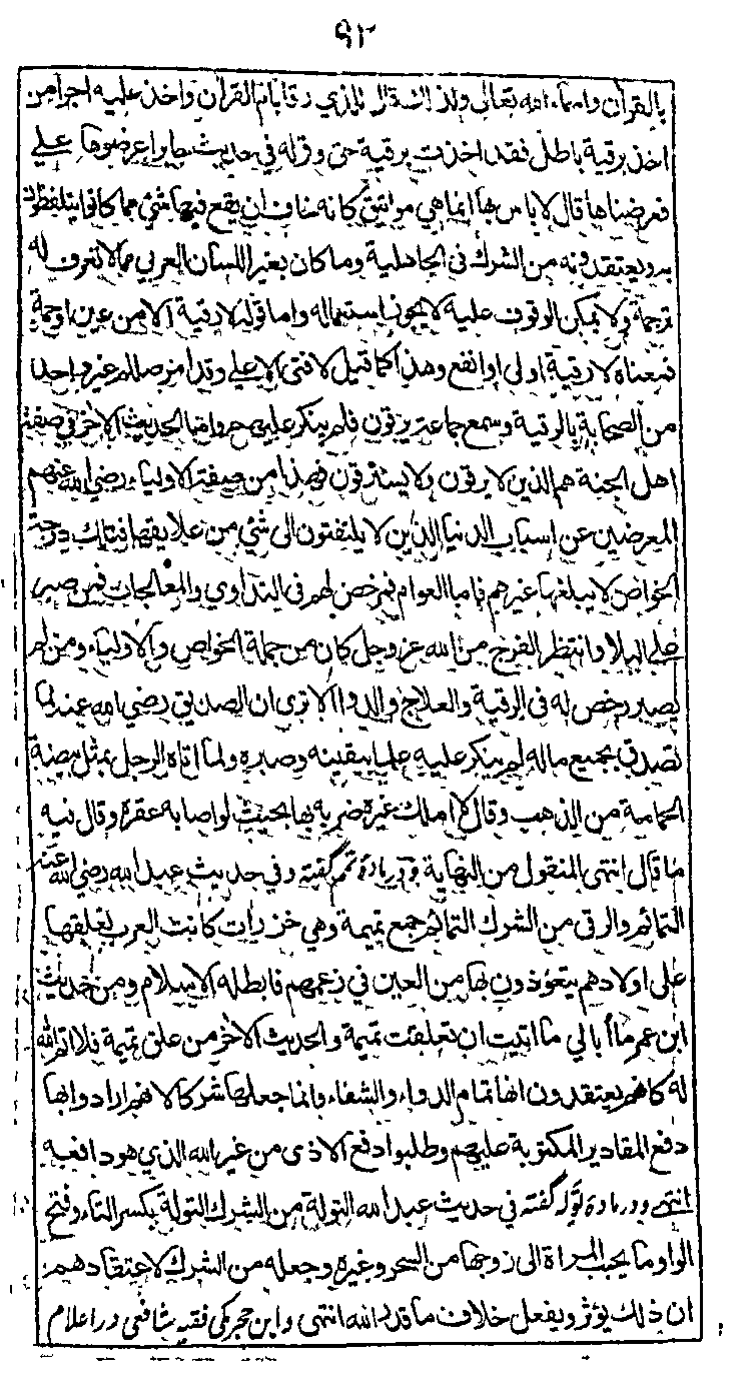 ٩٢
بالقرآن واسماء الله تعالى ولذا قال للذي رقا بام القرآن واخذ عليه اجرا من
اخذ برقية باطل فقد اخذت برقية حق وقوله في حديث جابر اعرضوها علي
فعرضناها قال لا باس بها انما هي مواثيق كانه خاف ان يقع فيها شئ مما كانوا يتلفظون
به ويعتقدونه من الشرك في الجاهلية وما كان بغير اللسان العربي مما لا تعرف له
ترجمة ولا يمكن الوقوف عليه لا يجوز استعماله واما قوله لا رقية الا من عين او حمة
فمعناه لا رقية اولى او انفع وهذا كما قيل لا فتى الا علي وقد امر صللم غير واحد
من الصحابة بالرقية وسمع جماعة يرقون فلم ينكر عليهم واما الحديث الاخر في صفة
اهل الجنة هم الذين لا يرقون ولا يسترقون فهذا من صفة الاولياء رضي الله عنهم
المعرضين عن اسباب الدنيا الذين لا يلتفتون الى شئ من علايقها فتلك درجة
الخواص لا يبلغها غيرهم فاما العوام فمرخص لهم في التداوي والمعالجات فمن صبر
على البلا وانتظر الفرج من الله عز وجل كان من جملة الخواص والاولياء ومن لم
يصبر رخص له في الرقية والعلاج والدوا الا ترى ان الصديق رضي الله عنه لما
تصدق بجميع ماله لم ينكر عليه علما بيقينه وصبره ولما اتاه الرجل بمثل بيضة
الحمامة من الذهب وقال لا املك غيره ضربه بها بحيث لو اصابه عقره وقال فيه
ما قال انتهى المنقول من النهاية ودر ماده تمم گفته وفي حديث عبد الله رضي الله عنه
التمائم والرقى من الشرك التمائم جمع تميمة وهي خرزات كانت العرب تعلقها
على اولادهم يتعوذون بها من العين في زعمهم فابطله الاسلام ومن حديث
ابن عمر ما أبالي ما اتيت ان تعلقت تميمة والحديث الاخر من علق تميمة فلا اتم الله
له كانهم يعتقدون انها تمام الدواء والشفاء وانما جعلها شركا لانهم ارادوا بها
دفع المقادير المكتوبة عليهم وطلبوا دفع الاذى من غير الله الذي هو دافعه
انتهى ودر ماده توله گفته في حديث عبد الله التولة من الشرك التولة بكسر التاء وفتح
الواو ما يحبب المراة الى زوجها من السحر وغيره وجعله من الشرك لاعتقادهم
ان ذلك يؤثر ويفعل خلاف ما قدر الله انتهى وابن حجر مكي فقيه شافعي در اعلام